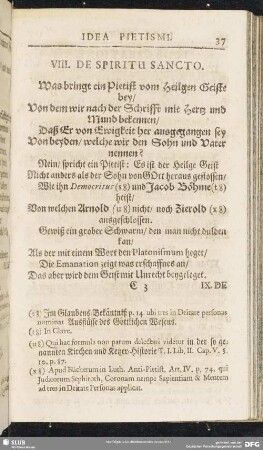 IDEA PIETISMI 37
VIII. DE SPIRITU SANCTO.
Was bringt ein Pietist vom Heilgen Geiste
bey/
Von dem wir nach der Schrifft mit Hertz und
Mund bekennen/
Daß Er von Ewigkeit her ausgegangen sey
Von beyden/ welche wir den Sohn und Vater
nennen?
Nein/ spricht ein Pietist: Es ist der Heilge Geist
Nicht anders als der Sohn von GOtt heraus geflossen/
Wie ihn Democritus (s8) und Jacob Böhme (t8)
heist/
Von welchen Arnold (u8) nicht/ noch Zierold (x8)
ausgeschlossen.
Gewiß ein grober Schwarm/ den man nicht dulden
kan/
Als der mit einem Wort den Platonismum heget/
Die Emanation zeigt was erschaffnes an/
Das aber wird dem Geist mit Unrecht beygeleget.
C 3 IX. DE
(s8) Im Glaubens-Bekäntniß p. 14. ubi tres in Deitate personas
nominat Ausflüsse des Göttlichen Wesens.
(t8) In Clave.
(u8) Qui hac formula non parum delectari videtur in der so ge-
nannten Kirchen und Ketzer-Historie T. I. Lib. II. Cap. V. §.
10. p. 87.
(x8) Apud Bücherum in Luth. Anti-Pietist. Art. IV. p. 74. qui
Judæorum Sephiroth, Coronam nempe Sapientiam & Mentem
ad tres in Deitate Personas applicat.
SLUB